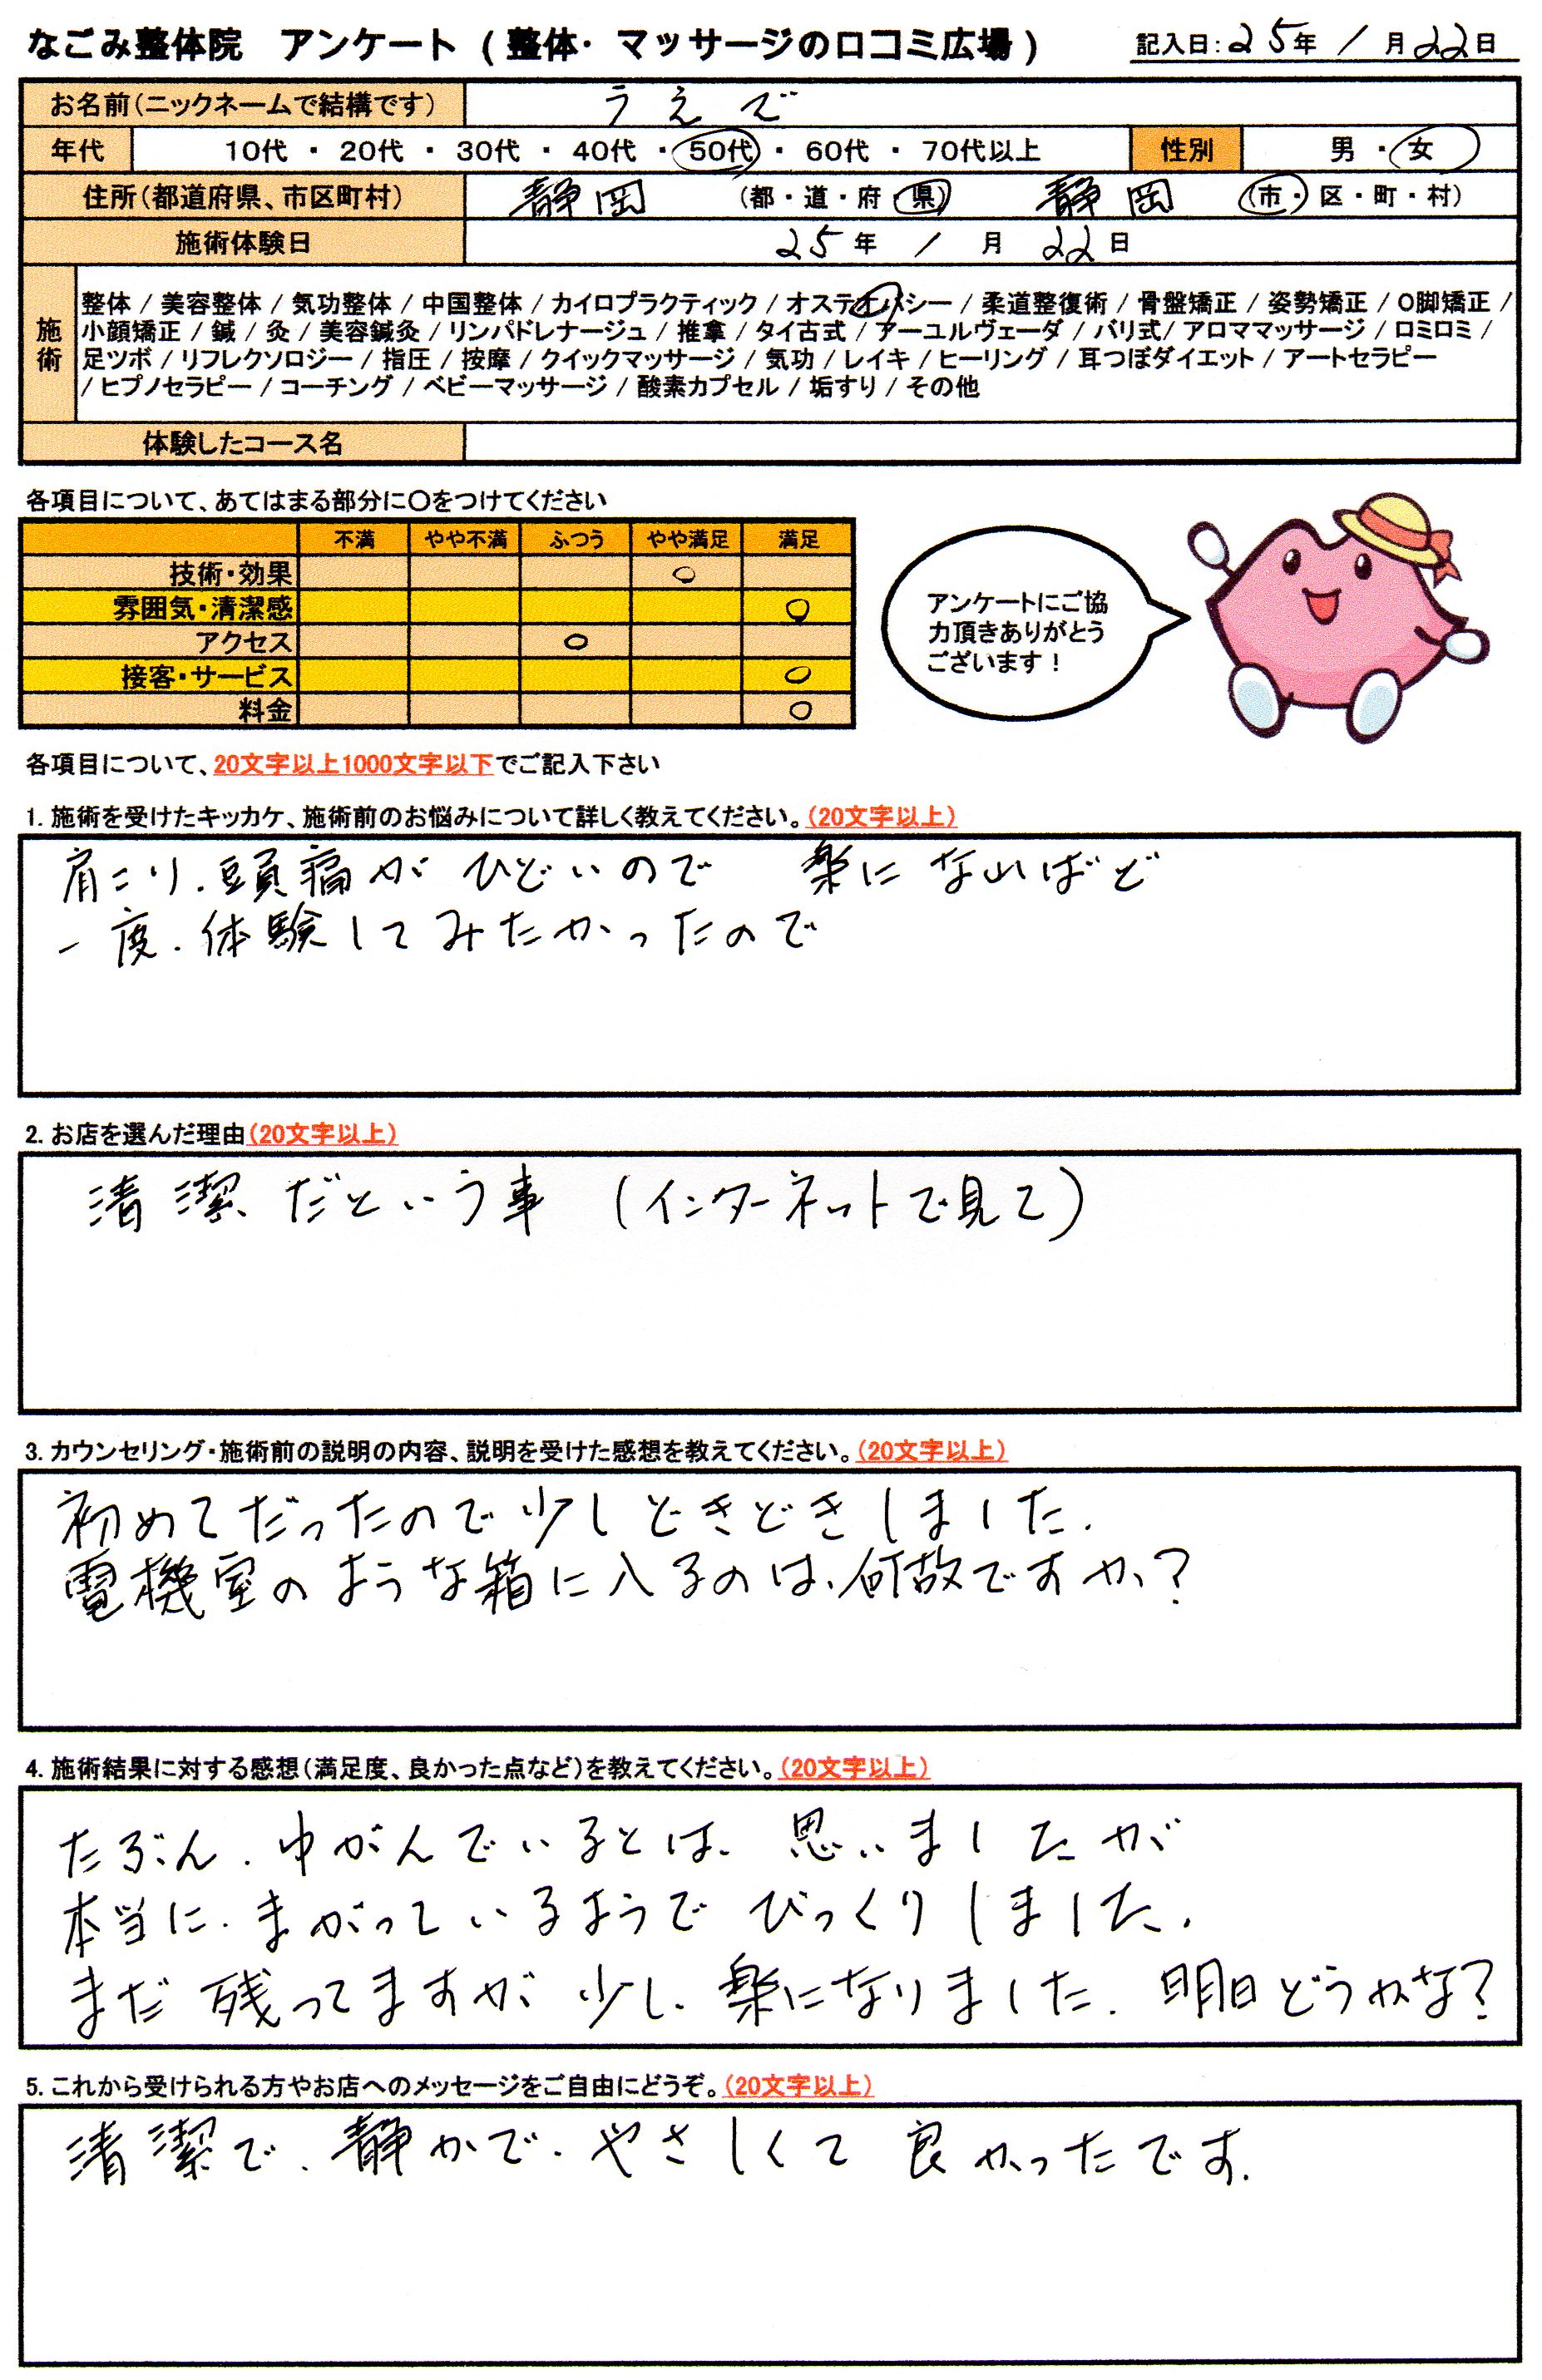 なごみ整体院 アンケート(整体・マッサージの口コミ広場) 記入日:25年1月22日
お名前(ニックネームで結構です) うえで
年代 10代・20代・30代・40代・50代・60代・70代以上 性別 男・女
住所(都道府県、市区町村) 静岡 (都・道・府・県) 静岡 (市・区・町・村)
施術体験日 25年1月22日
施術
整体/美容整体/気功整体/中国整体/カイロプラクティック/オステオパシー/柔道整復術/骨盤矯正/姿勢矯正/O脚矯正/
小顔矯正/鍼/灸/美容鍼灸/リンパドレナージュ/推拿/タイ古式/アーユルヴェーダ/バリ式/アロママッサージ/ロミロミ/
足ツボ/リフレクソロジー/指圧/按摩/クイックマッサージ/気功/レイキ/ヒーリング/耳つぼダイエット/アートセラピー
/ヒプノセラピー/コーチング/ベビーマッサージ/酸素カプセル/垢すり/その他
体験したコース名
各項目について、あてはまる部分に○をつけてください
不満 やや不満 ふつう やや満足 満足
技術・効果 ○
雰囲気・清潔感 ○
アクセス ○
接客・サービス ○
料金 ○
アンケートにご協
力頂きありがとう
ございます!
各項目について、20文字以上1000文字以下でご記入下さい
1. 施術を受けたキッカケ、施術前のお悩みについて詳しく教えてください。(20文字以上)
肩こり、頭痛がひどいので 楽になればと
一度、体験してみたかったので
2. お店を選んだ理由(20文字以上)
清潔だという事 (インターネットで見て)
3. カウンセリング・施術前の説明の内容、説明を受けた感想を教えてください。(20文字以上)
初めてだったので少しどきどきしました。
電機室のような箱に入るのは、何故ですか?
4. 施術結果に対する感想(満足度、良かった点など)を教えてください。(20文字以上)
たぶん、ゆがんでいるとは、思いましたが
本当に、まがっているようでびっくりしました。
まだ残ってますが少し、楽になりました。明日どうかな?
5. これから受けられる方やお店へのメッセージをご自由にどうぞ。(20文字以上)
清潔で、静かで、やさしくて良かったです。